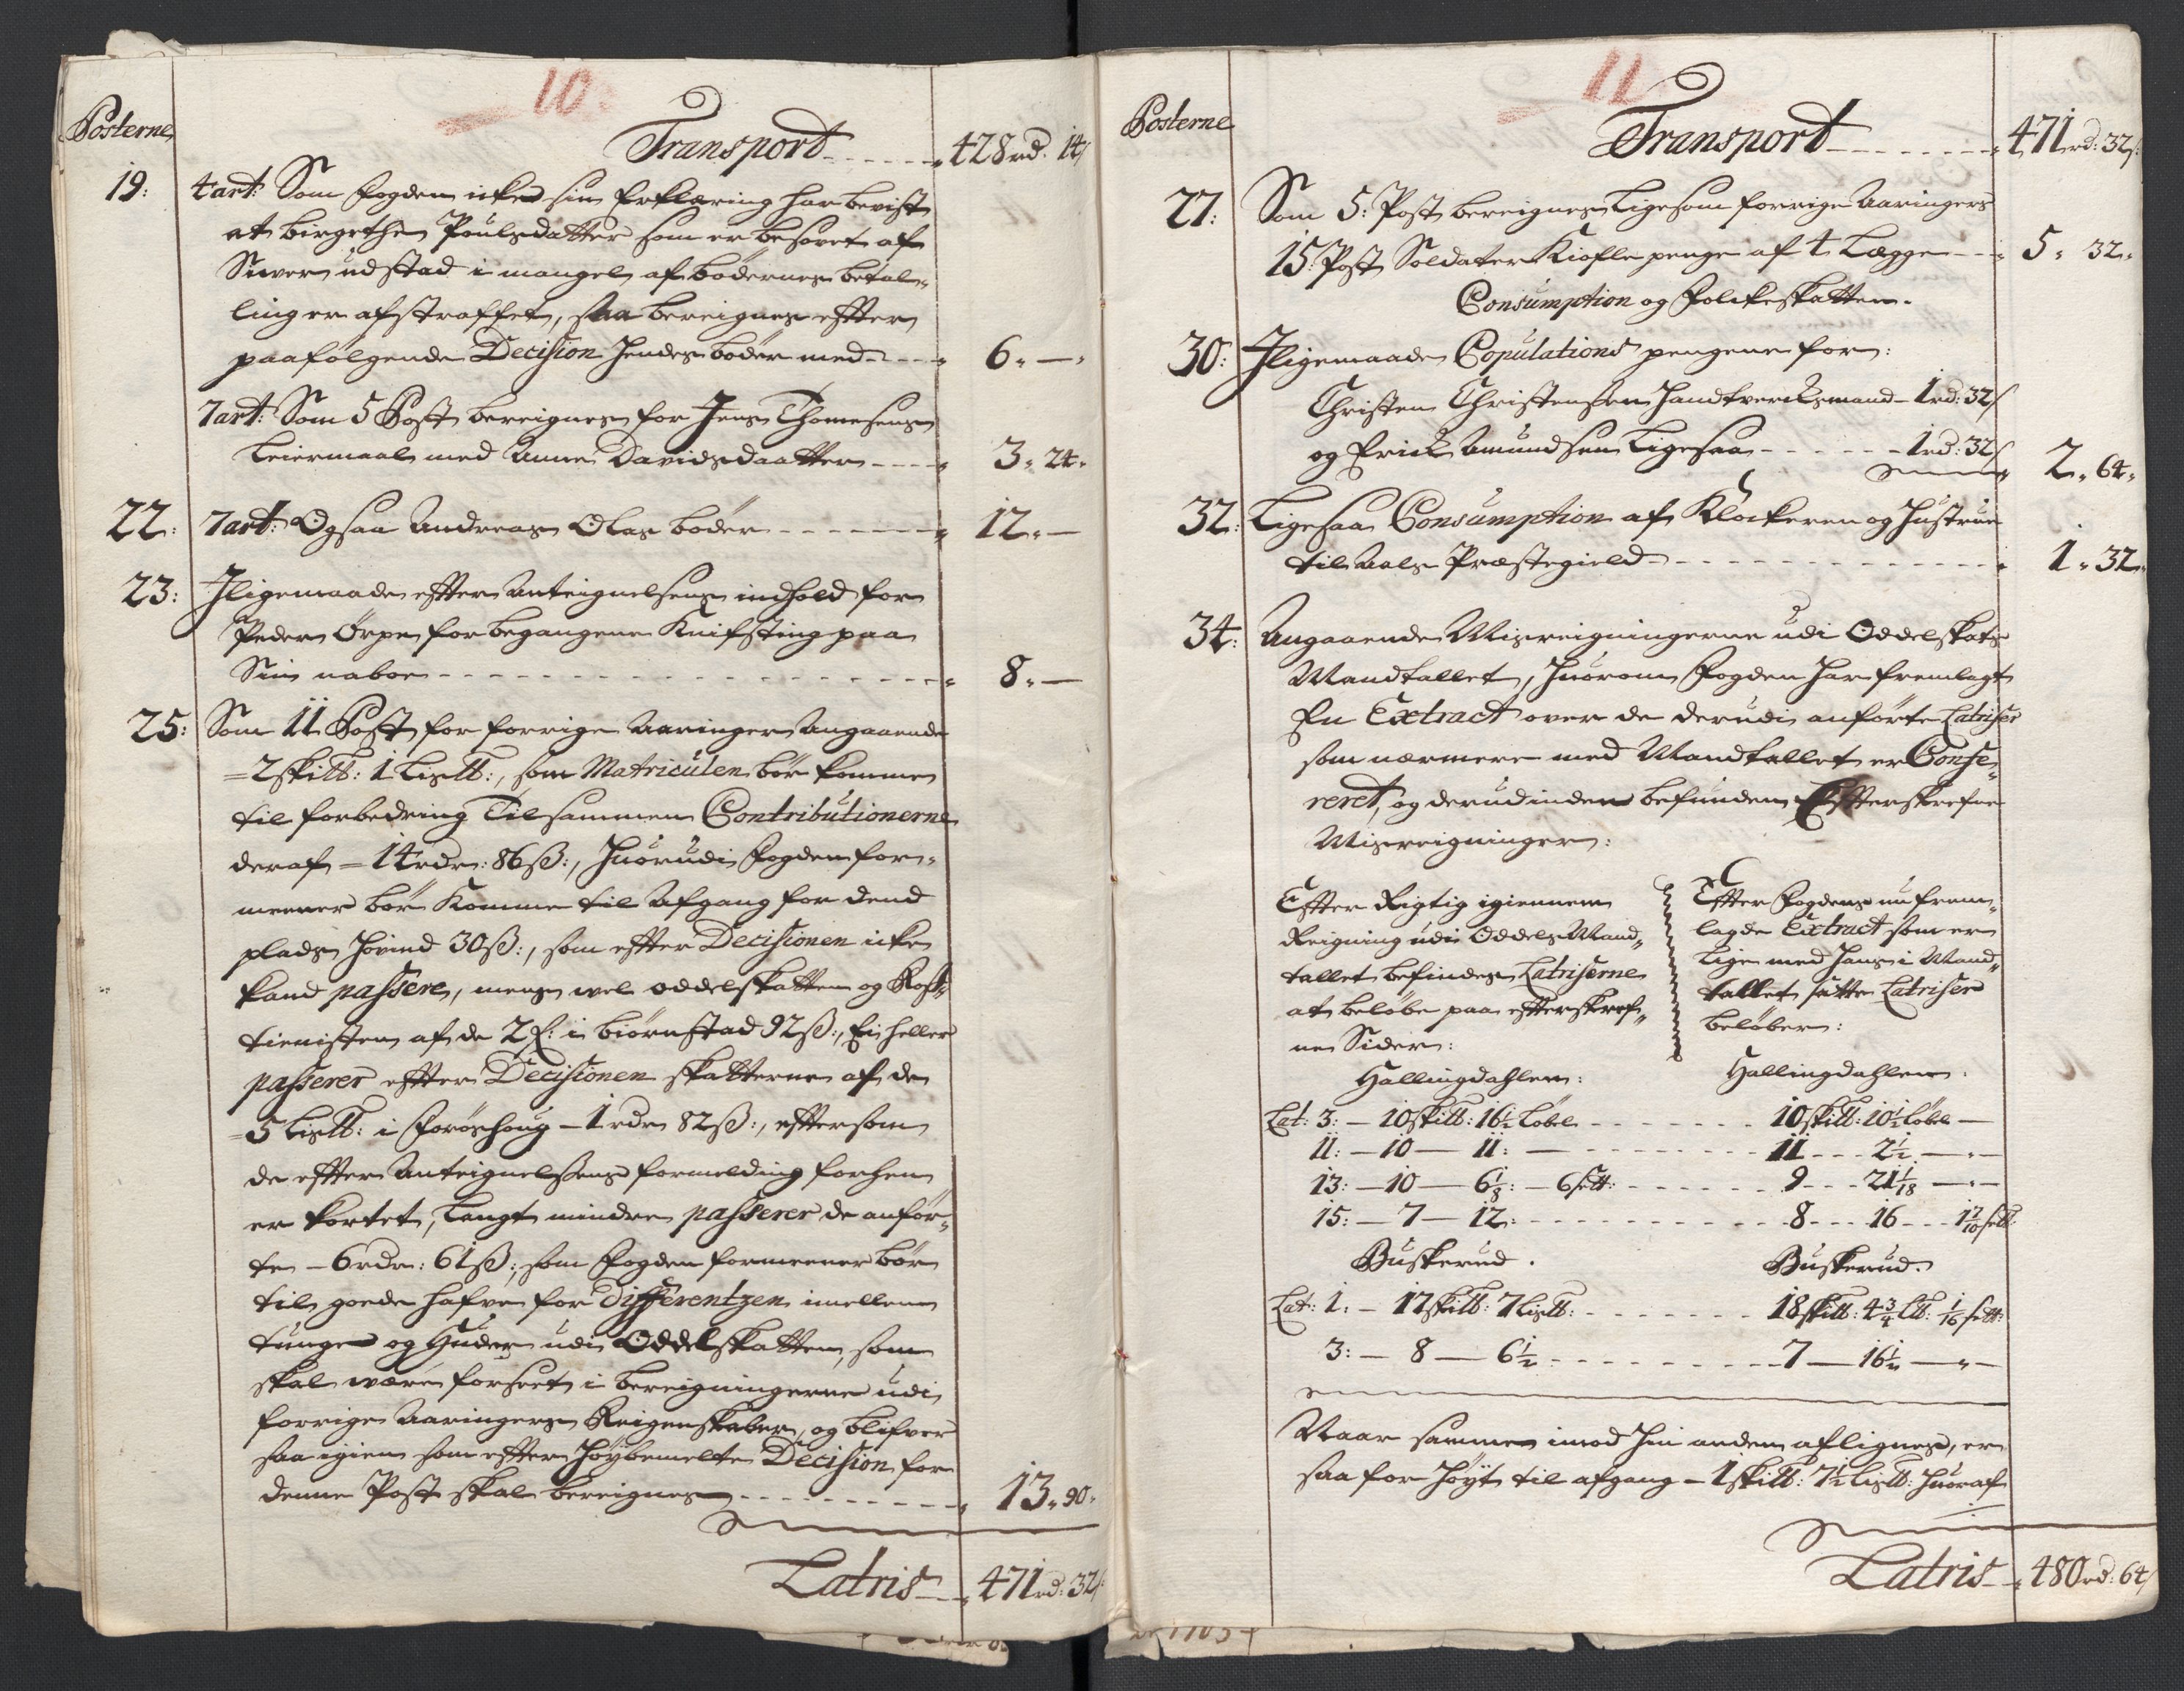 10
Posterne
Transport - - - - - 428 rd. 14 s
19: 4 art: Som Fogden icke sin Erklæring har bevist
at Birgethe Poulsdatter som er besovet af
Siver udstad i mangel af bödernes betal-
ling er afstraffet, saa bereignes effter
paafölgende Decision hendes böder med - - - 6 " — "
7 art: Som 5 Post bereignes for Jens Thomesens
Leiermaal med Anne Davidsdaatter - - - - 3 " 24 "
22: 7 art: Ogsaa Andreas Olas böder - - - - - - - 12 " —
23: Iligemaade effter Anteignelsens indhold for
Peder Örpen for begangene Knifsting paa
Sin naboe - - - - - - - - - - - - - - - - 8 " —
25: Som 11 Post for forrige Aaringer Angaaende
= 2 skill: 1 Lisll:, som Matriculen bör komme
til forbedring Tilsammen Contributionerne
deraf = 14 rdr: 86 ß:, huorudi Fogden for-
meener bör Komme til Afgang for dend
plads Hövind 30 ß:, som effter Decisionen icke
kand passere, mens vel oddelskatten og Ross-
tienisten af de 2 f: i Biörnstad 92 ß:, Ei heller
passerer effter Decisionen skatterne af de
= 5 Lisll: i Foröshoug - 1 rdr 82 ß:, efftersom
de effter Anteignelsens formelding forhen
er kortet, langt mindre passerer de anför-
te - 6 rdr: 61 ß:, som Fogden formeener bör
til gode hafve for Differentzen imellem
tunge og Huder udi Oddelskatten, som
skal være forseet i bereigningerne udi
forrige Aaringers Reigenskaber, og blifver
saa igien som effter Höybemelte Decision for
denne Post skal bereignes - - - - - - - - - - 13 " 90 "
Latris - - 471 rd: 32 s
11
Posterne
Transport - - - - - - 471 rd: 32 s:
27: Som 5: Post bereignes Ligesom forrige Aaringers
15: Post Soldater Kiosle penge af 4 Lægge - - - 5 " 32 "
Consumption og Folckeskatten.
30: Iligemaade Copulations pengene for:
Christen Christensen Handtvercksmand - 1 rd: 32 s
og Erick Amundsen Ligesaa - - - - - - 1 rd: 32 s
2 " 64 "
32: Ligesaa Consumption af Klockeren og Hustrue
til Aals Præstegield - - - - - - - - - - - - 1 " 32 "
34: Angaaende Misreigningerne udi Oddelskats
Mandtallet, huorom Fogden har fremlagt
En Extract over de derudi anförte Latriser
som nærmere med Mandtallet er Confe-
reret, og derudinden befunden Effterskrefne
Misreigninger:
Effter Rigtig igiennem
Reigning udi Oddels Mand-
tallet befindes Latriserne
at belöbe paa effterskref-
ne Sider:
Hallingdahlen:
Effter Fogdens nu frem-
lagde Extract som er
Lige med hans i Mand-
tallet satte Latriser
belöber:
Hallingdahlen:
Lat: 3: - 10 skill: 16 1/2 Löbe - - - - - - 10 skill: 10 1/2 löbe —
11: - 10 — 11: — - - - - - - - - 11 - - - 2 1/2 — " —
13: - 10 — 6 1/8: - 6 sett: - - - - - - 9 - - - 21 1/18 — " —
15: - 7 — 12: - - - - - - - - - - - 8 - - - 16 - - - 1 7/10 sett
Buskerud.
Buskerud.
Lat: 1: - 17 skill: 7 Lisll: - - - - - - 18 skill: 4 3/4 Lll: 1/16 sett:
3: — 8 — 6 1/2 - - - - - - - - - 7 — 16 1/2 — " —
Naar samme imod hin anden aflignes, er
saa for höyt til afgang - 1 skill: 7 1/2 Lisll: huoraf
Latris - - 480 rd: 64 s